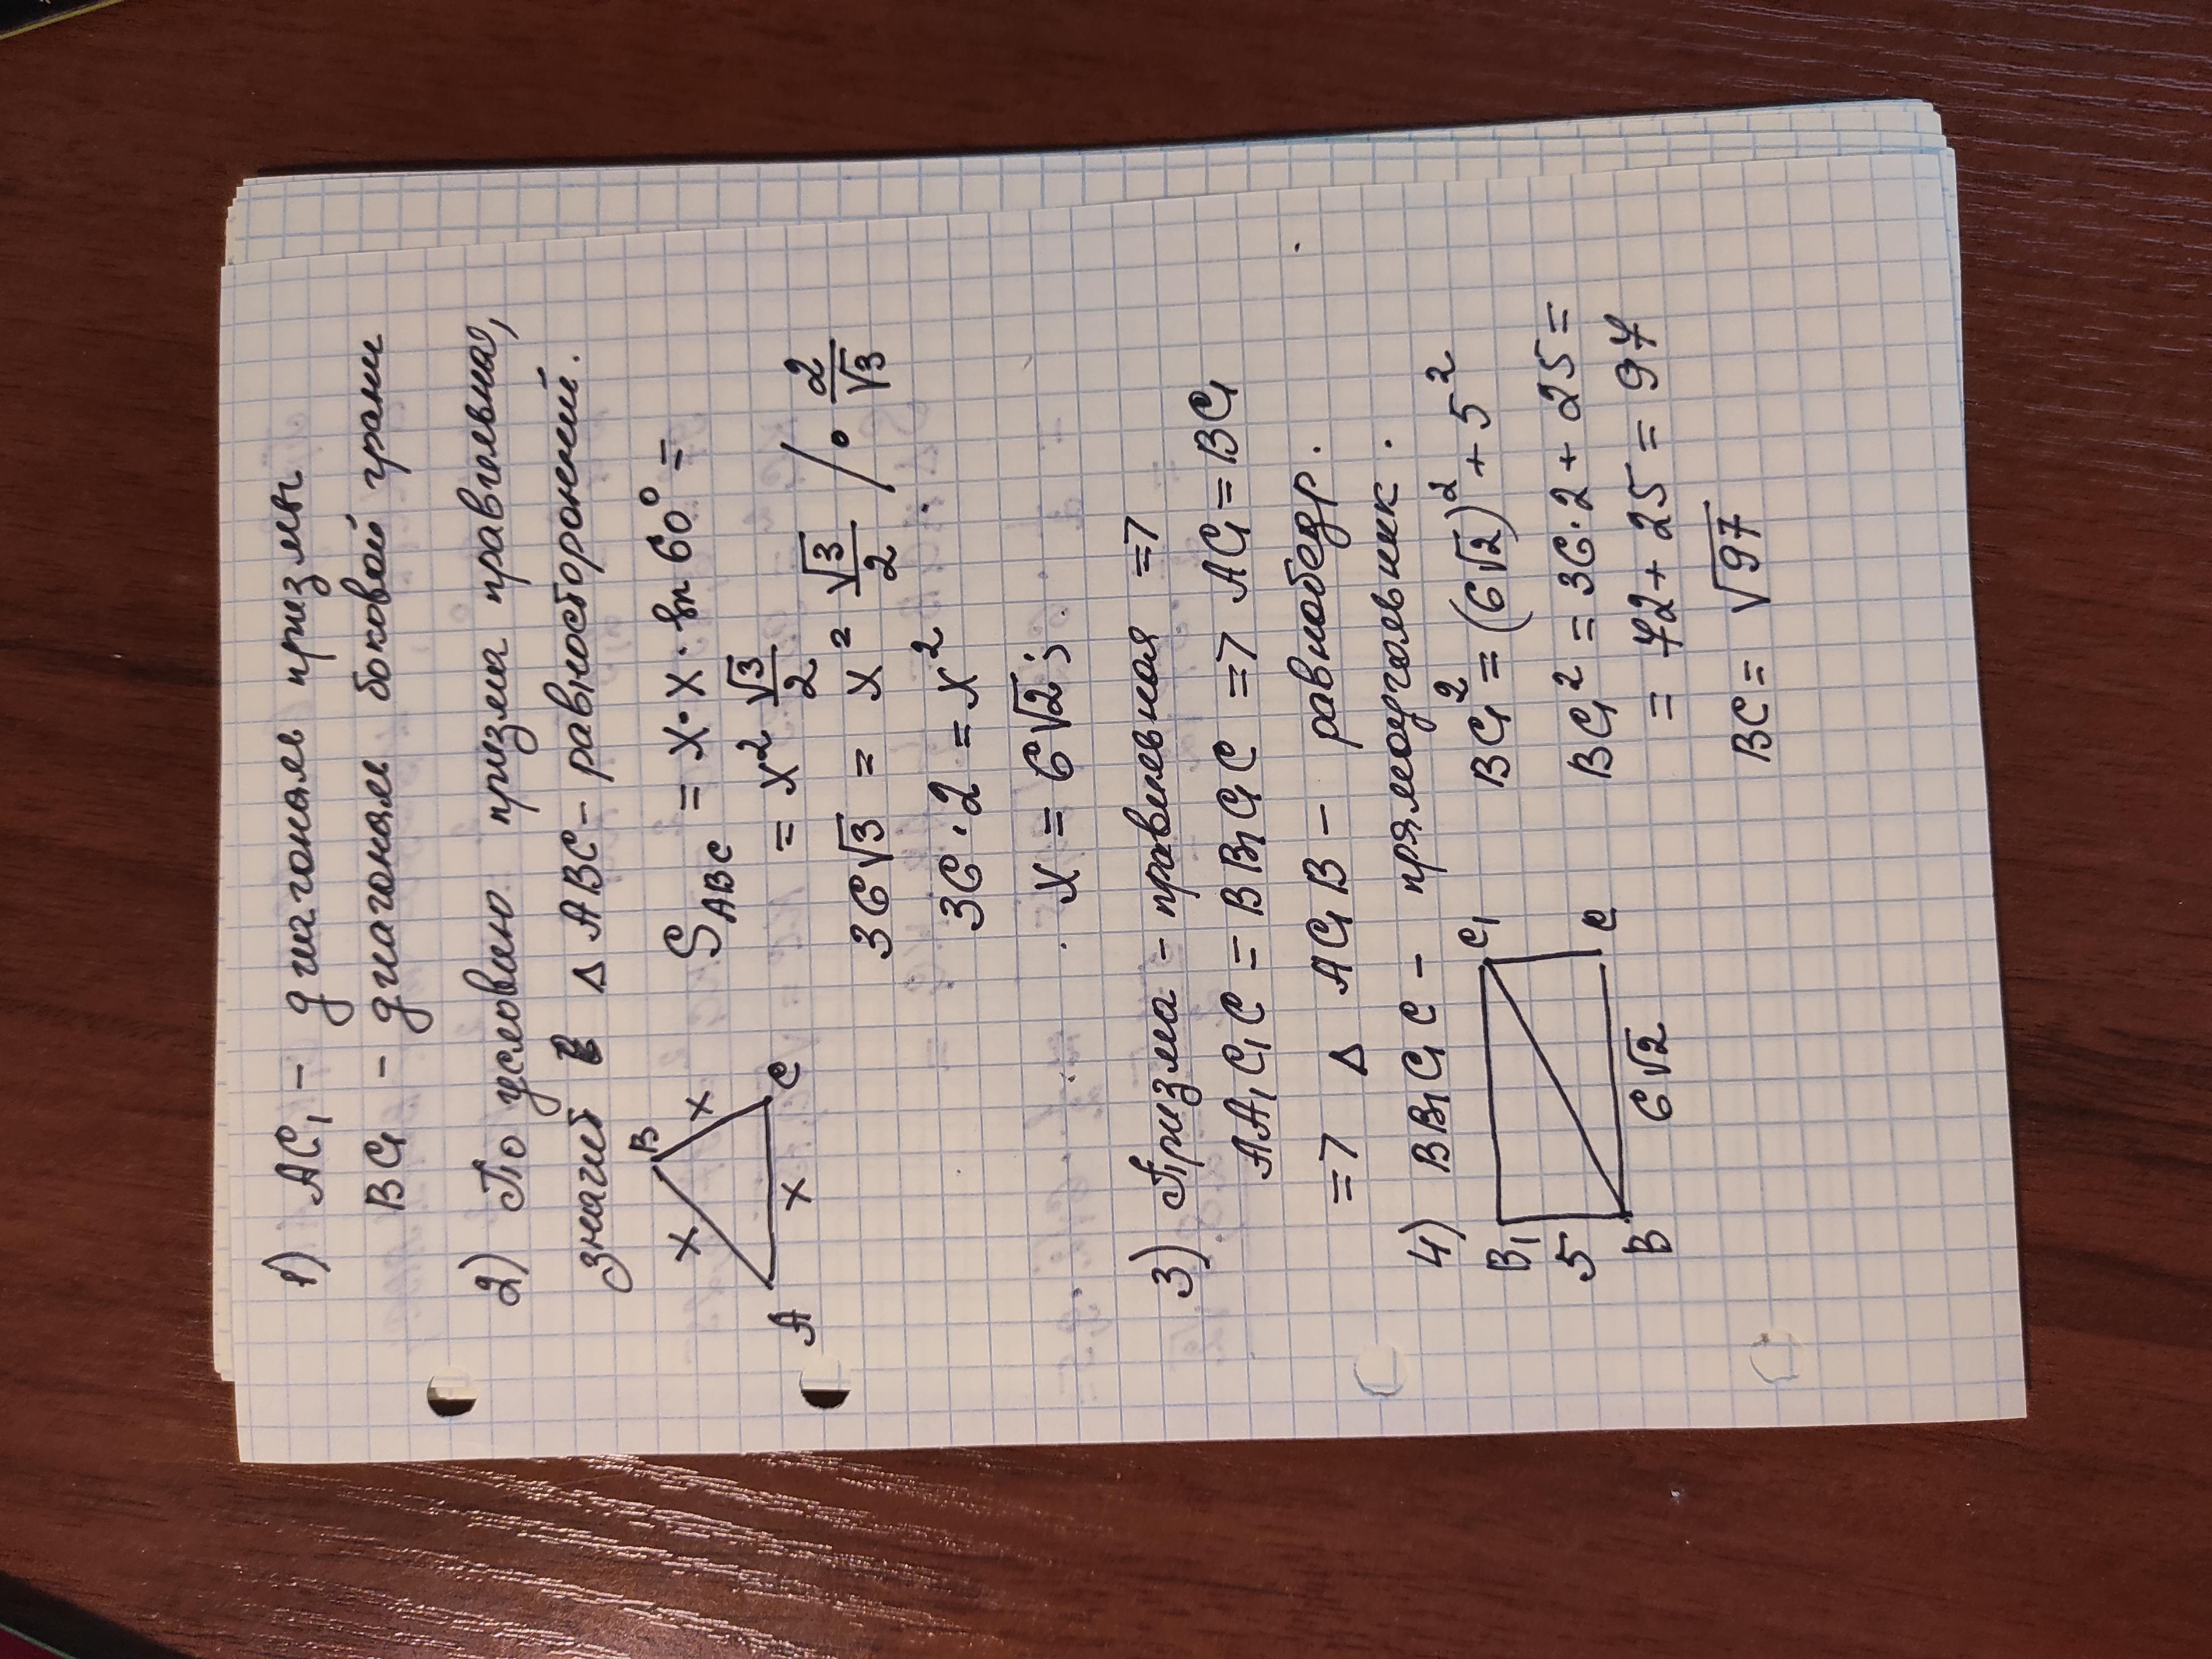 1) AC₁ – диагональ призмы
BC₁ – диагональ боковой грани
2) По условию призма правильная,
значит Δ ABC – равносторонний.
B
x
x
A
x
C
S_ABC = x·x·sin 60° =
= x² √3/2
36√3 = x² √3/2 /· 2/√3
36·2 = x²
x = 6√2;
3) Призма – правильная =>
AA₁C₁C = BB₁C₁C => AC₁ = BC₁
=> Δ AC₁B – равнобедр.
4) BB₁C₁C – прямоугольник.
B₁
C₁
5
B
6√2
C
BC₁² = (6√2)² + 5²
BC₁² = 36·2 + 25 =
= 72 + 25 = 97
BC = √97